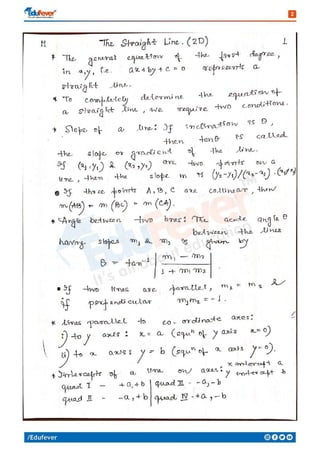 Edufever
2
The Straight Line. (2D)
1
* The general equation of the first degree,
in x,y, i.e. ax+by+c = 0 represents a
straight line.
* To completely determine the equation of
a straight line, we require two conditions.
* Slope of a line: If inclination is θ,
then tanθ is called
the slope or gradient of the line.
If (x₁,y₁) & (x₂,y₂) are two points on a
line, then the slope m = (y₂-y₁)/(x₂-x₁)
If three points A, B, C are collinear, then
m(AB) = m(BC) = m(CA).
* Angle between two lines: The acute angle θ
between the lines
having slopes m₁ & m₂ is given by
θ = tan⁻¹ | m₁ - m₂ / 1 + m₁m₂ |
* If two lines are parallel, m₁ = m₂ &
if perpendicular m₁m₂ = -1.
* Lines parallel to co-ordinate axes:
i) to y axis : x = a (equⁿ of y axis x=0)
ii) to x axis : y = b (equⁿ of x axis y=0).
* Intercepts of a line on axes: x intercept a
y intercept b
quad I - +a,+b | quad III - -a,-b
quad II - -a,+b | quad IV - +a,-b
/Edufever